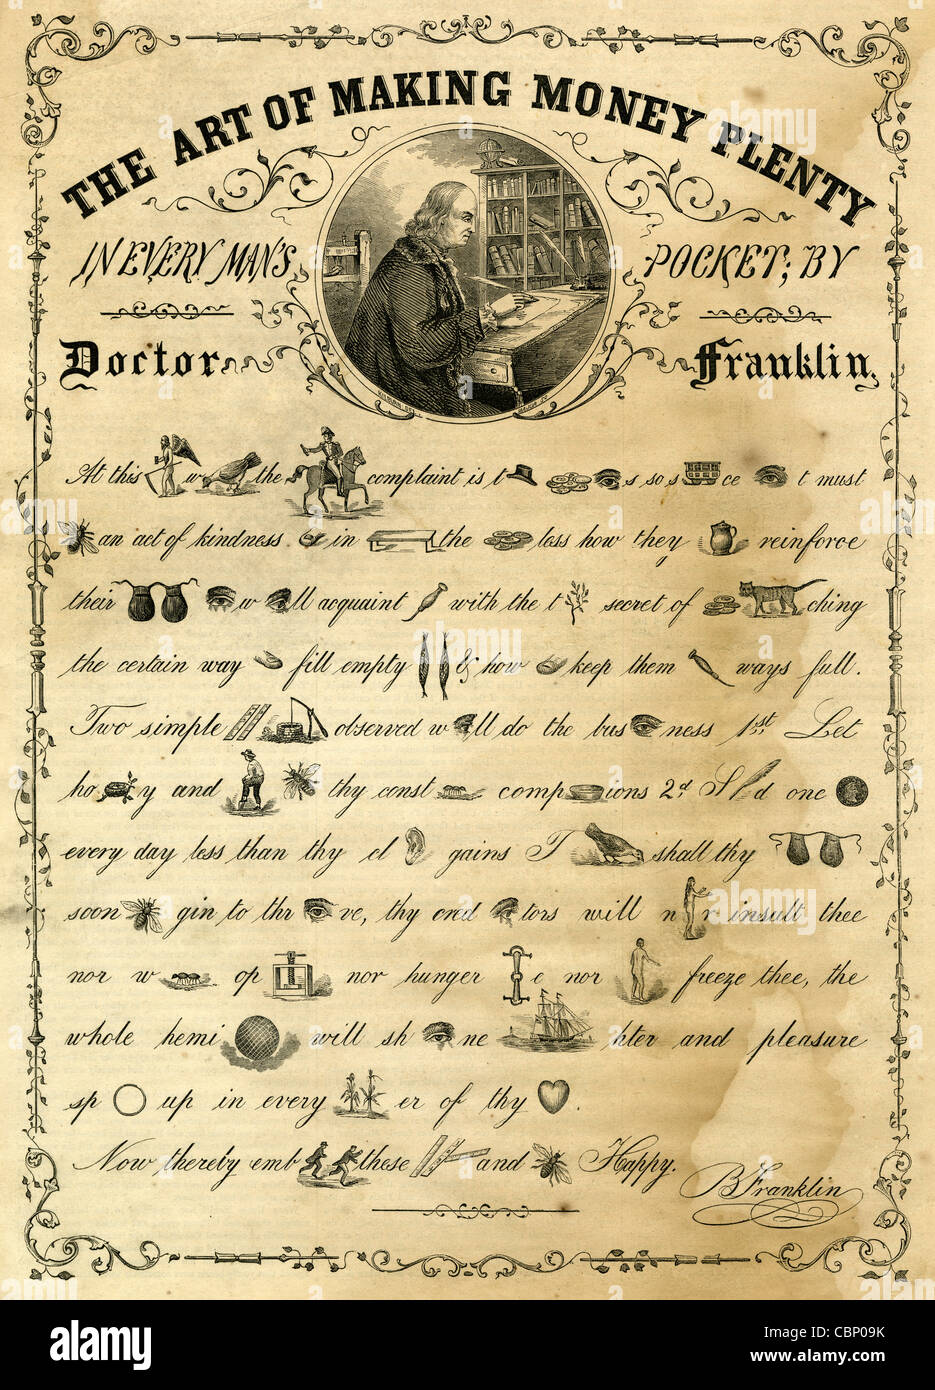 THE ART OF MAKING MONEY PLENTY
IN EVERY MAN'S POCKET; BY
Doctor Franklin.
At this w the complaint is t s so s ce t must
an act of kindness in the less how they reinforce
their w ll acquaint with the t secret of ching
the certain way fill empty & how keep them ways full.
Two simple observed w ll do the bus ness 1st Let
ho y and thy const comp ions 2d S d one
every day less than thy cl gains T shall thy
soon gin to thr ve, thy cred tors will n r insult thee
nor w op nor hunger e nor freeze thee, the
whole hemi will sh ne hter and pleasure
sp up in every er of thy .
Now thereby emb these and Happy.
B Franklin
alamy
alamy
Image ID: CBP09K
www.alamy.com